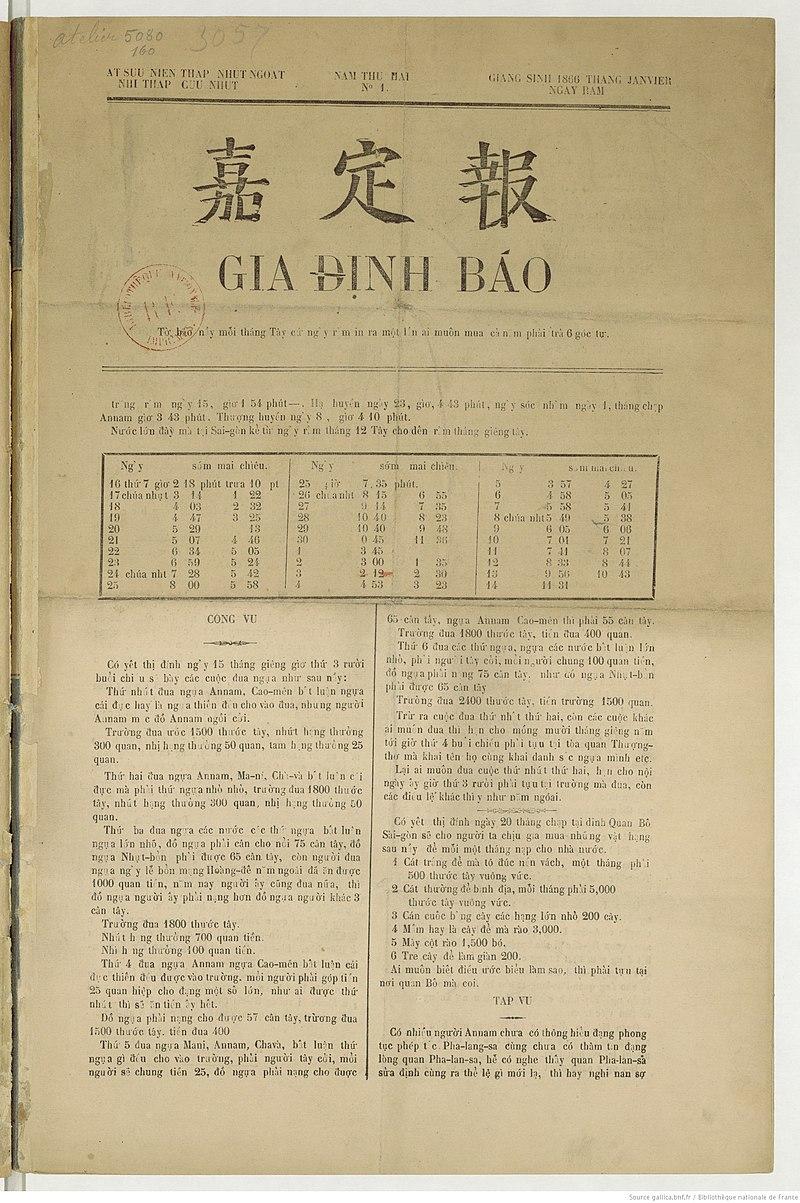 atelier 5080
160
3057
AT SUU NIEN THAP NHUT NGOAT
NHI THAP CUU NHUT
NAM THU HAI
Nº 1.
GIANG SINH 1866 THANG JANVIER
NGAY RAM
嘉 定 報
GIA ĐỊNH BÁO
Tờ báo nầy mỗi tháng Tây cứ ngày rằm in ra một lần ai muốn mua cả năm phải trả 6 góc tư.
ngày 15, giờ 1 54 phút—. Hạ huyền ngày 23, giờ, 4 43 phút, ngày sóc nhằm ngày 1, tháng chạp
Annam giờ 3 43 phút. Thượng huyền ngày 8 , giờ 4 10 phút.
Nước lớn đầy mà tại Sai-gòn kể từ ngày rằm tháng 12 Tây cho đến rằm tháng giêng tây.
Ngày sớm mai chiều.
16 thứ 7 giờ 2 18 phút trưa 10 pt
17 chúa nhựt 3 14 1 22
18 4 03 2 32
19 4 47 3 25
20 5 29 13
21 5 07 4 46
22 6 34 5 05
23 6 59 5 24
24 chúa nht 7 28 5 42
25 8 00 5 58
Ngày sớm mai chiều.
25 giờ 7,35 phút.
26 chúa nht 8 15 6 55
27 9 14 7 35
28 10 40 8 23
29 10 40 9 48
30 0 45 11 36
1 3 45
2 3 00 1 35
3 2 12 2 30
4 4 53 3 23
Ngày sớm mai chiều.
5 3 57 4 27
6 4 58 5 05
7 5 58 5 41
8 chúa nht 5 49 5 38
9 6 05 6 06
10 7 01 7 21
11 7 41 8 07
12 8 33 8 44
13 9 56 10 43
14 11 31
CÔNG VỤ
Có yết thị định ngày 15 tháng giêng giờ thứ 3 rưởi
buổi chiều sẽ bày các cuộc đua ngựa như sau nầy:
Thứ nhứt đua ngựa Annam, Cao-mên bất luận ngựa
cái đực hay là ngựa thiến đều cho vào đua, nhưng người
Annam mặc đồ Annam ngồi cỡi.
Trường đua ước 1500 thước tây, nhứt hạng thưởng
300 quan, nhị hạng thưởng 50 quan, tam hạng thưởng 25
quan.
Thứ hai đua ngựa Annam, Ma-ní, Chà-và bất luận cái
đực mà phải thứ ngựa nhỏ nhỏ, trường đua 1800 thước
tây, nhứt hạng thưởng 300 quan, nhị hạng thưởng 50
quan.
Thứ ba đua ngựa các nước các thứ ngựa bất luận
ngựa lớn nhỏ, đồ ngựa phải cân cho nổi 75 cân tây, đồ
ngựa Nhựt-bổn phải được 65 cân tây, còn người đua
ngựa ngày lễ bổn mạng Hoàng-đế năm ngoái đã ăn được
1000 quan tiền, năm nay người ấy cũng đua nữa, thì
đồ ngựa người ấy phải nặng hơn đồ ngựa người khác 3
cân tây.
Trường đua 1800 thước tây.
Nhứt hạng thưởng 700 quan tiền.
Nhì hạng thưởng 100 quan tiền.
Thứ 4 đua ngựa Annam ngựa Cao-mên bất luận cái
đực thiến đều được vào trường, mỗi người phải góp tiền
25 quan hiệp cho đạng một số lớn, như ai được thứ
nhứt thì sẽ ăn tiền ấy hết.
Đồ ngựa phải nặng cho được 57 cân tây, trường đua
1500 thước tây. tiền đua 400
Thứ 5 đua ngựa Mani, Annam, Chavà, bất luận thứ
ngựa gì đều cho vào trường, phải người tây cỡi, mỗi
người sẽ chung tiền 25, đồ ngựa phải nặng cho được
65 cân tây, ngựa Annam Cao-mên thì phải 55 cân tây.
Trường đua 1800 thước tây, tiền đua 400 quan.
Thứ 6 đua các thứ ngựa, ngựa các nước bất luận lớn
nhỏ, phải người tây cỡi, mỗi người chung 100 quan tiền,
đồ ngựa phải nặng 75 cân tây. như có ngựa Nhựt-bổn
phải được 65 cân tây
Trường đua 2400 thước tây, tiền trường 1500 quan.
Trừ ra cuộc đua thứ nhứt thứ hai, còn các cuộc khác
ai muốn đua thì hẹn cho mồng mười tháng giêng năm
tới giờ thứ 4 buổi chiều phải tựu tại tòa quan Thượng-
thơ mà khai tên họ cùng khai danh sắc ngựa mình etc.
Lại ai muốn đua cuộc thứ nhứt thứ hai, hẹn cho nội
ngày ấy giờ thứ 3 rưởi phải tựu tại trường mà đua, còn
các điều lệ khác thì y như năm ngoái.
Có yết thị định ngày 20 tháng chạp tại dinh Quan Bố
Sài-gòn sẽ cho người ta chịu gia mua những vật hạng
sau nầy để mỗi một tháng nạp cho nhà nước.
1 Cát trắng để mà tô đúc nền vách, một tháng phải
500 thước tây vuông vức.
2 Cát thường để bình địa, mỗi tháng phải 5,000
thước tây vuông vức.
3 Cán cuốc bằng cây các hạng lớn nhỏ 200 cây.
4 Mắm hay là cây để mà rào 3,000.
5 Mây cột rào 1,500 bó.
6 Tre cây để làm giàn 200.
Ai muốn biết điều ước biểu làm sao, thì phải tựu tại
nơi quan Bố mà coi.
TẠP VỤ
Có nhiều người Annam chưa có thông hiểu đạng phong
tục phép tắc Pha-lang-sa cùng chưa có thâm tín đạng
lòng quan Pha-lan-sa, hễ có nghe thấy quan Pha-lan-sa
sửa định cùng ra thể lệ gì mới lạ, thì hay nghi nan sợ
Source gallica.bnf.fr / Bibliothèque nationale de France